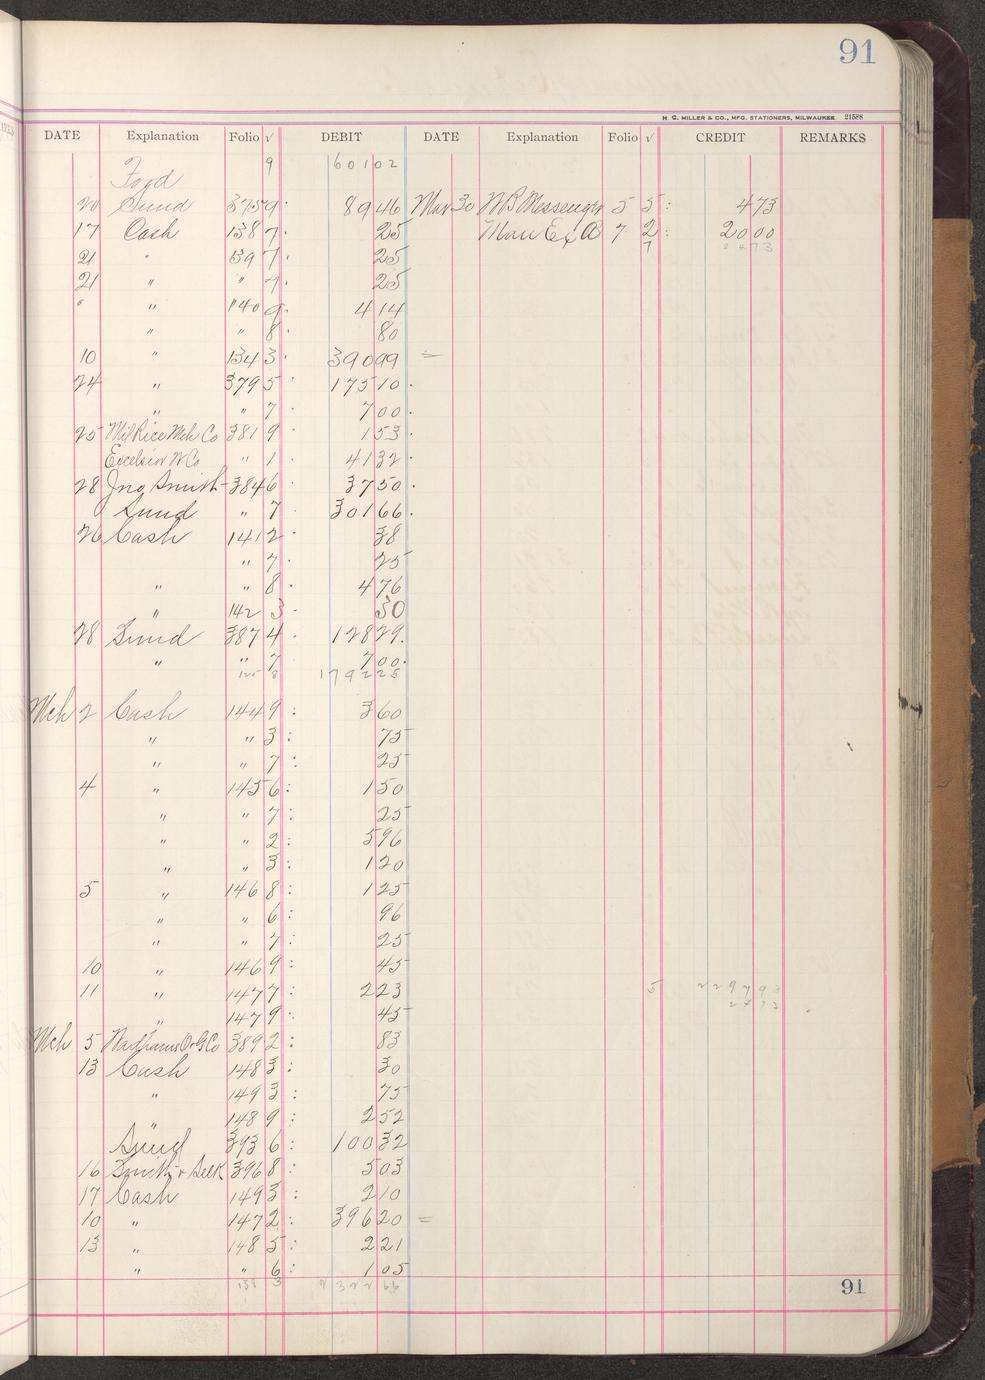 91
H. C. MILLER & CO., MFG. STATIONERS, MILWAUKEE 21588
DATE Explanation Folio √ DEBIT DATE Explanation Folio √ CREDIT REMARKS
Ford 9 601 02
20 Sund 375 9 89 46 Mar 30 W B Messenger 5 5 4 73
17 Cash 138 7 25 Man Ex A 7 2 20 00
21 " 139 7 25 7 24 73
21 " " 7 25
" " 140 9 4 14
" " 8 80
10 " 134 3 390 99 =
24 " 379 5 175 10
" " 7 7 00
25 Mil Rice Mch Co 381 9 1 53
Excelsior W Co " 1 41 32
28 Jno Smith 384 6 37 50
Sund " 7 301 66
26 Cash 141 2 38
" 7 25
" " 8 4 76
" 142 3 30
28 Sund 387 4 128 29
" " 7 7 00
125 8 1792 25
Mch 2 Cash 144 9 3 60
" " 3 75
" " 7 25
4 " 145 6 1 50
" " 7 25
" " 2 5 96
" " 3 1 20
5 " 146 8 1 25
" " 6 96
" " 7 25
10 " 146 9 45
11 " 147 7 2 23 5 2297 93
" 147 9 45 24 73
Mch 5 Wadhams O & G Co 389 2 83
13 Cash 148 3 30
" 149 3 75
" 148 9 2 52
Sund 393 6 100 32
16 Smith & Selk 396 8 5 03
17 Cash 149 3 2 10
10 " 147 2 396 20 =
13 " 148 5 2 21
" " 6 1 05
138 3 2322 66
91